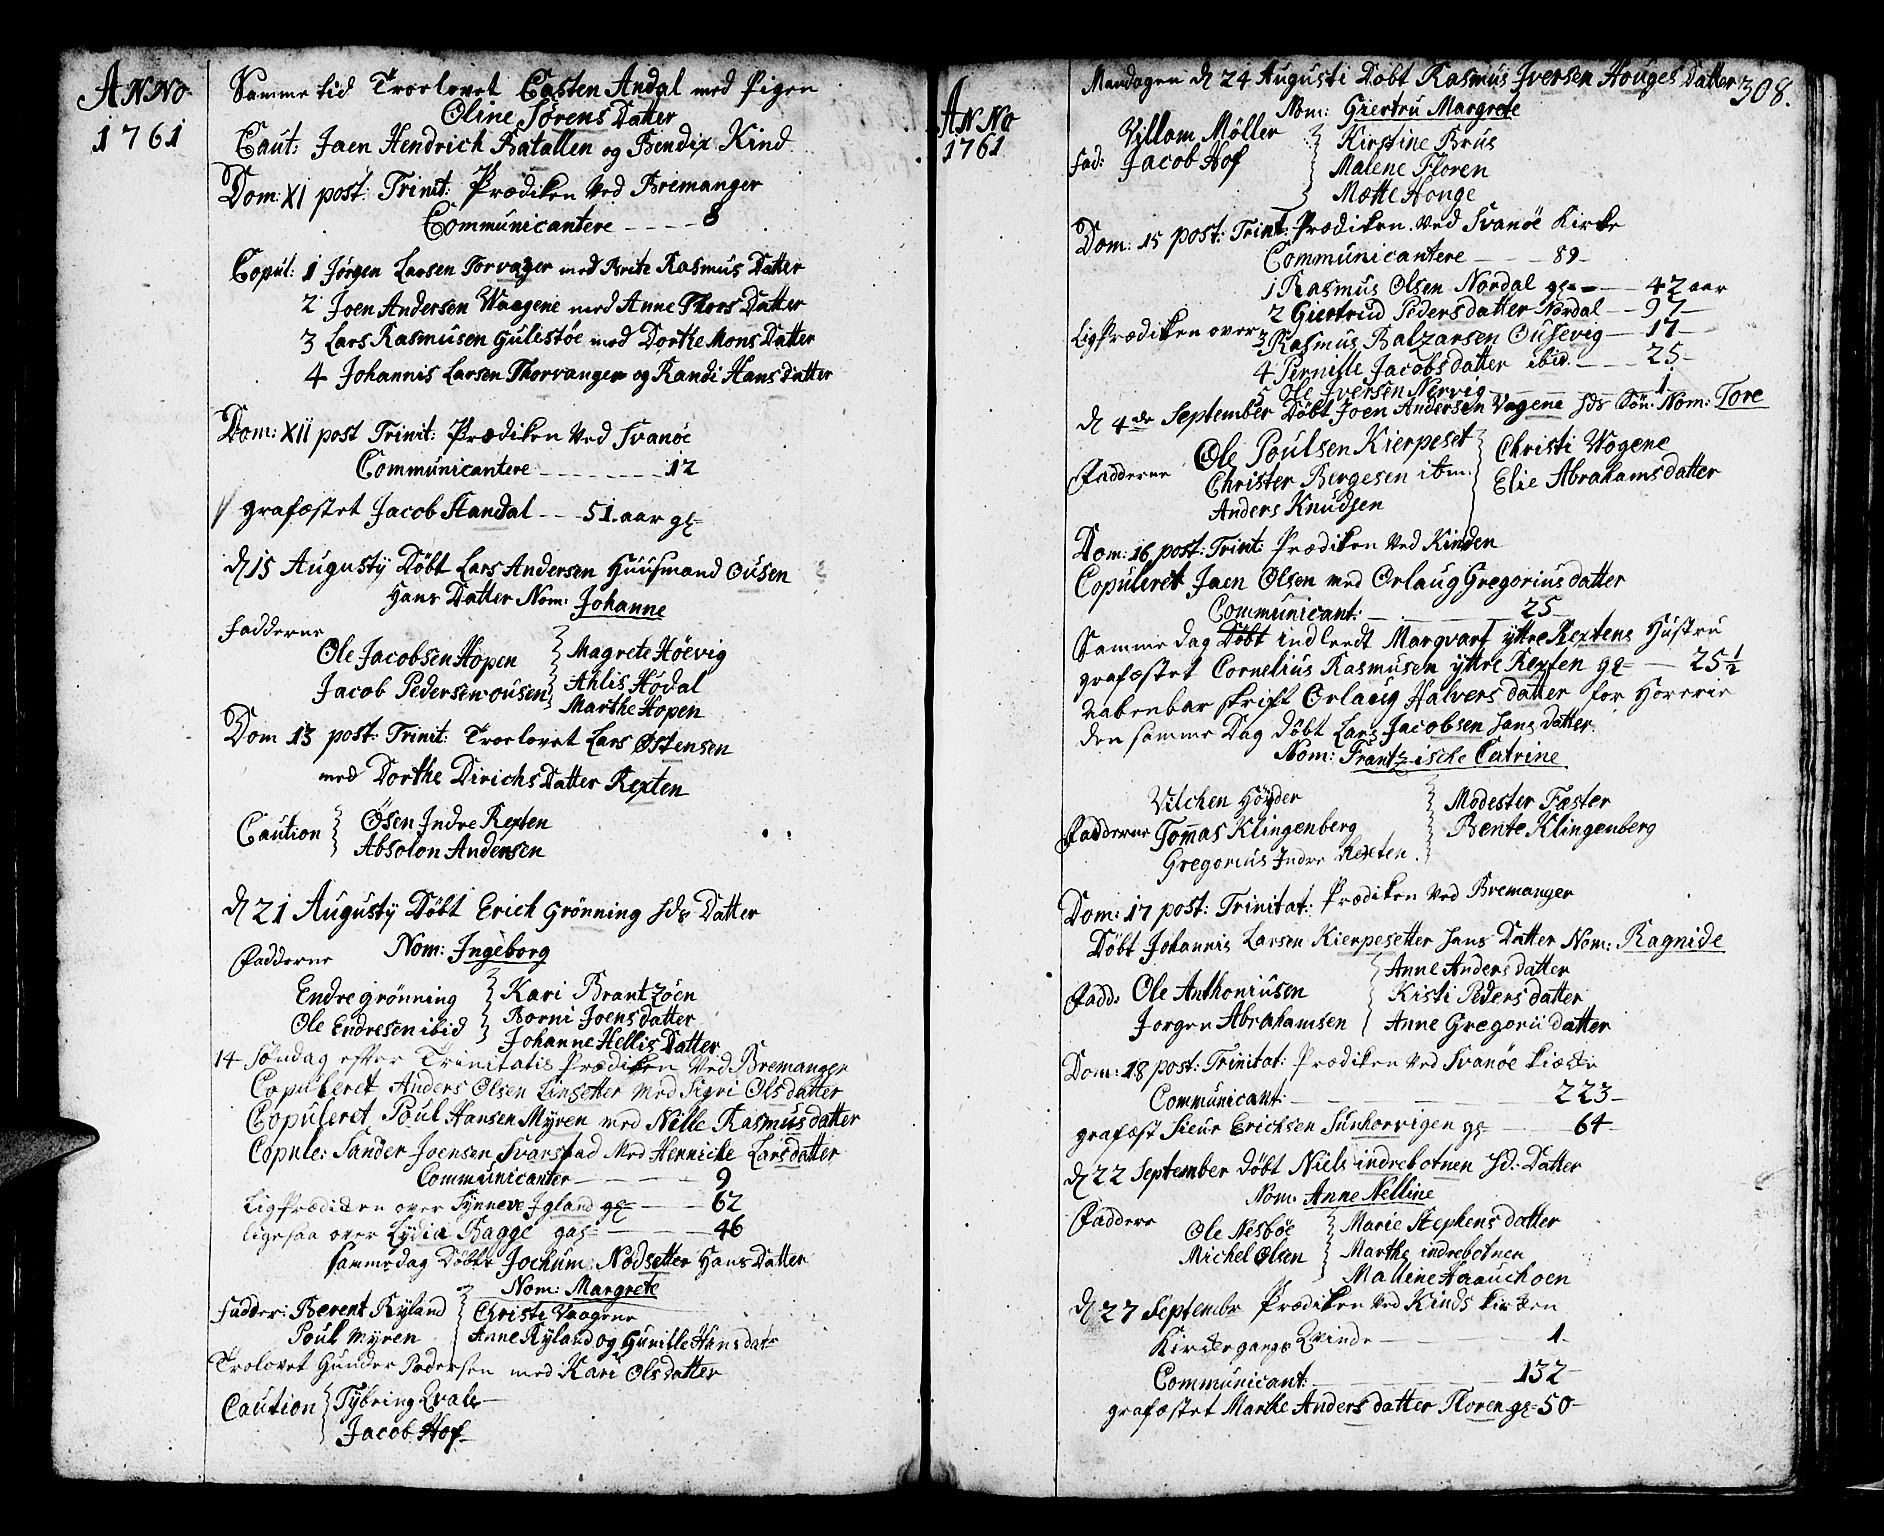 ANNO
1761
Samme tid Troelovet Casten Andal med Pigen
Oline Sørens Datter
Caut: Jaen Hendrich Batallen og Bendix Kind
Dom: XI post: Trinit: Prædiken Ved Bremanger
Communicantere - - - - 8
Copul: 1 Jørgen Larsen Torvager med Brite Rasmus Datter
2 Joen Andersen Waagene med Anne Thors Datter
3 Lars Rasmusen Gulestøe med Dorthe Mons Datter
4 Johannis Larsen Thorvanger og Randi Hans datter
Dom: XII post Trinit: Prædiken Ved Svanöe
Communicantere - - - - - - 12
grafæstet Jacob Standal - - - 51. aar gl
d 15 Augustÿ Døbt Lars Andersen Huusmand Ousen
Hans Datter Nom: Johanne
Fadderne
Ole Jacobsen Hopen
Jacob Pedersen ousen
Magrete Høevig
Ahlis Hødal
Marthe Hopen
Dom 13 post: Trinit: Troelovet Lars Østensen
med Dorthe Dirichs Datter Rexten
Caution
Øsen Indre Rexten
Absolon Andersen
d 21 Augustÿ Døbt Erich Grönning hds Datter
Nom: Ingeborg
Fadderne
Endre grönning
Ole Endresen ibid
Kari Brantzöen
Borni Joens datter
Johanne Hellis Datter
14 Søndag efter Trinitatis Prædiken Ved Bremanger
Copuleret Anders Olsen Linsetter med Sigri Ols datter
Copuleret Poul Hansen Mÿren med Nille Rasmus datter
Copule: Sander Joensen Svarstad Med Hennicke Lars datter
Communicanter - - - - - 9
Ligprædiken over Synneve Igland gl - - - 62
ligesaa over Lydia Bagge gal - - - 46
samme dag Døbte Jochum Nødsetter Hans Datter
Nom: Margrete
Fadder: Berent Ryland
Poul Myren
Christi Vaagene
Anne Ryland og Gunille Hans datr
Trolovet Gunder Pedersen med Kari Ols datter
Caution
Tybring Qvale
Jacob Hof
ANNO
1761
308.
Mandagen d 24 Augusti Døbt Rasmus Iversen Houges Datter
Nom: Giertru Margrete
Fad:
Villam Møller
Jacob Hof
Kirstine Brüs
Malene Floren
Mætte Houge
Dom: 15 post: Trint: Prædiken Ved Svanöe Kirke
Communicantere - - - 89-
1 Rasmus Olsen Nordal gl - - - 42 aar
2 Giertrud Peders datter Nordal - - 97 -
Ligprædiken over 3 Rasmus Balzarsen Ousevig - 17 -
4 Pernille Jacobs datter ibid - - - 25 -
5 Ole Iversen Nervig - - - 1
d 4de September Døbt Joen Andersen Vagene hds Søn: Nom: Tore
Fadderne
Ole Poulsen Kierpeset
Christer Bergesen ibm:
Anders Knudsen
Christi Wogene
Elie Abrahams datter
Dom: 16 post: Trint: Prædiken Ved Kinden
Copuleret Jaen Olsen med Orlaug Gregorius datter
Communicant: - - - 25 -
Samme dag Døbt indleedt Marqvart yttre Rextens Hustru
grafæstet Cornelius Rasmusen yttre Rexten gl - - 25½
aabenbar skrift Orlaug Halvers datter for Horerie
den samme Dag døbt Lars Jacobsen hans datter
Nom: Frantzische Catrine
Fadderne
Vilchen Höyder
Tomas Klingenberg
Gregorius Indre Rexten
Modester Faster
Bente Klingenberg
Dom: 17 post: Trinitat: Prædiken Ved Bremanger
Døbt Johannis Larsen Kierpesetter hans Datter Nom: Ragnide
Fadd:
Ole Anthoniusen
Jorgen Abrahamsen
Anne Anders datter
Kisti Peders datter
Anne Gregorii datter
Dom: 18 post: Trinitat: Prædiken Ved Svanöe
Communicant: - - - 223 -
grafæst Sieur Erichsen Sunhorvigen gl - - - 64 -
d 22 September døbt Niels indrebotnen hd: Datter
Nom: Anne Nelline
Faddere
Ole Nesböe
Michel Olsen
Marie Stephens datter
Marthe indrebotnen
Malline Haauchoen
d 27 Septembr Prædiken Ved Kinds kirken
Kirckegangs Qvinde - - - 1 -
Communicant: - - - 132 -
grafæstet Marthe Anders datter Floren gl = 50 -